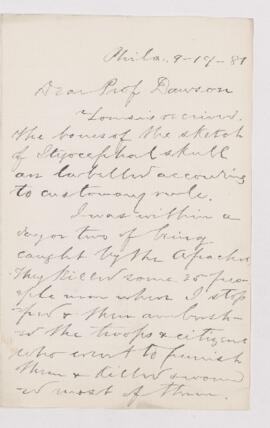 Phila. 9-17-81
Dear Prof Dawson
Yours is received.
The bones of the sketch
of Stegocephal skull
are labelled according
to customary rule.
I was within a
day or two of being
caught by the Apaches
They killed some 20 peo-
ple near where I stop
ped & then ambush-
ed the troops & citizens
who went to punish
them & killed & wound
ed most of them.